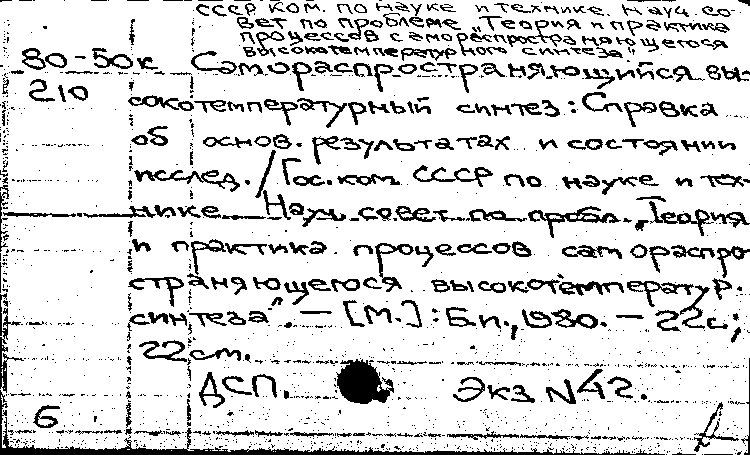 СССР КОМ. ПО НАУКЕ И ТЕХНИКЕ. НАУЧ. СО-
ВЕТ ПО ПРОБЛЕМЕ „ТЕОРИЯ И ПРАКТИКА
ПРОЦЕССОВ САМОРАСПРОСТРАНЯЮЩЕГОСЯ
ВЫСОКОТЕМПЕРАТУРНОГО СИНТЕЗА".
80-50к Самораспространяющийся вы-
210 сокотемпературный синтез: Справка
об основ. результатах и состоянии
исслед. / Гос. ком. СССР по науке и тех-
нике. Науч. совет по пробл. „Теория
и практика процессов самораспро-
страняющегося высокотемператур.
синтеза". – [М.]: Б.и., 1980. – 22с.;
22 см.
ДСП. Экз N42.
6